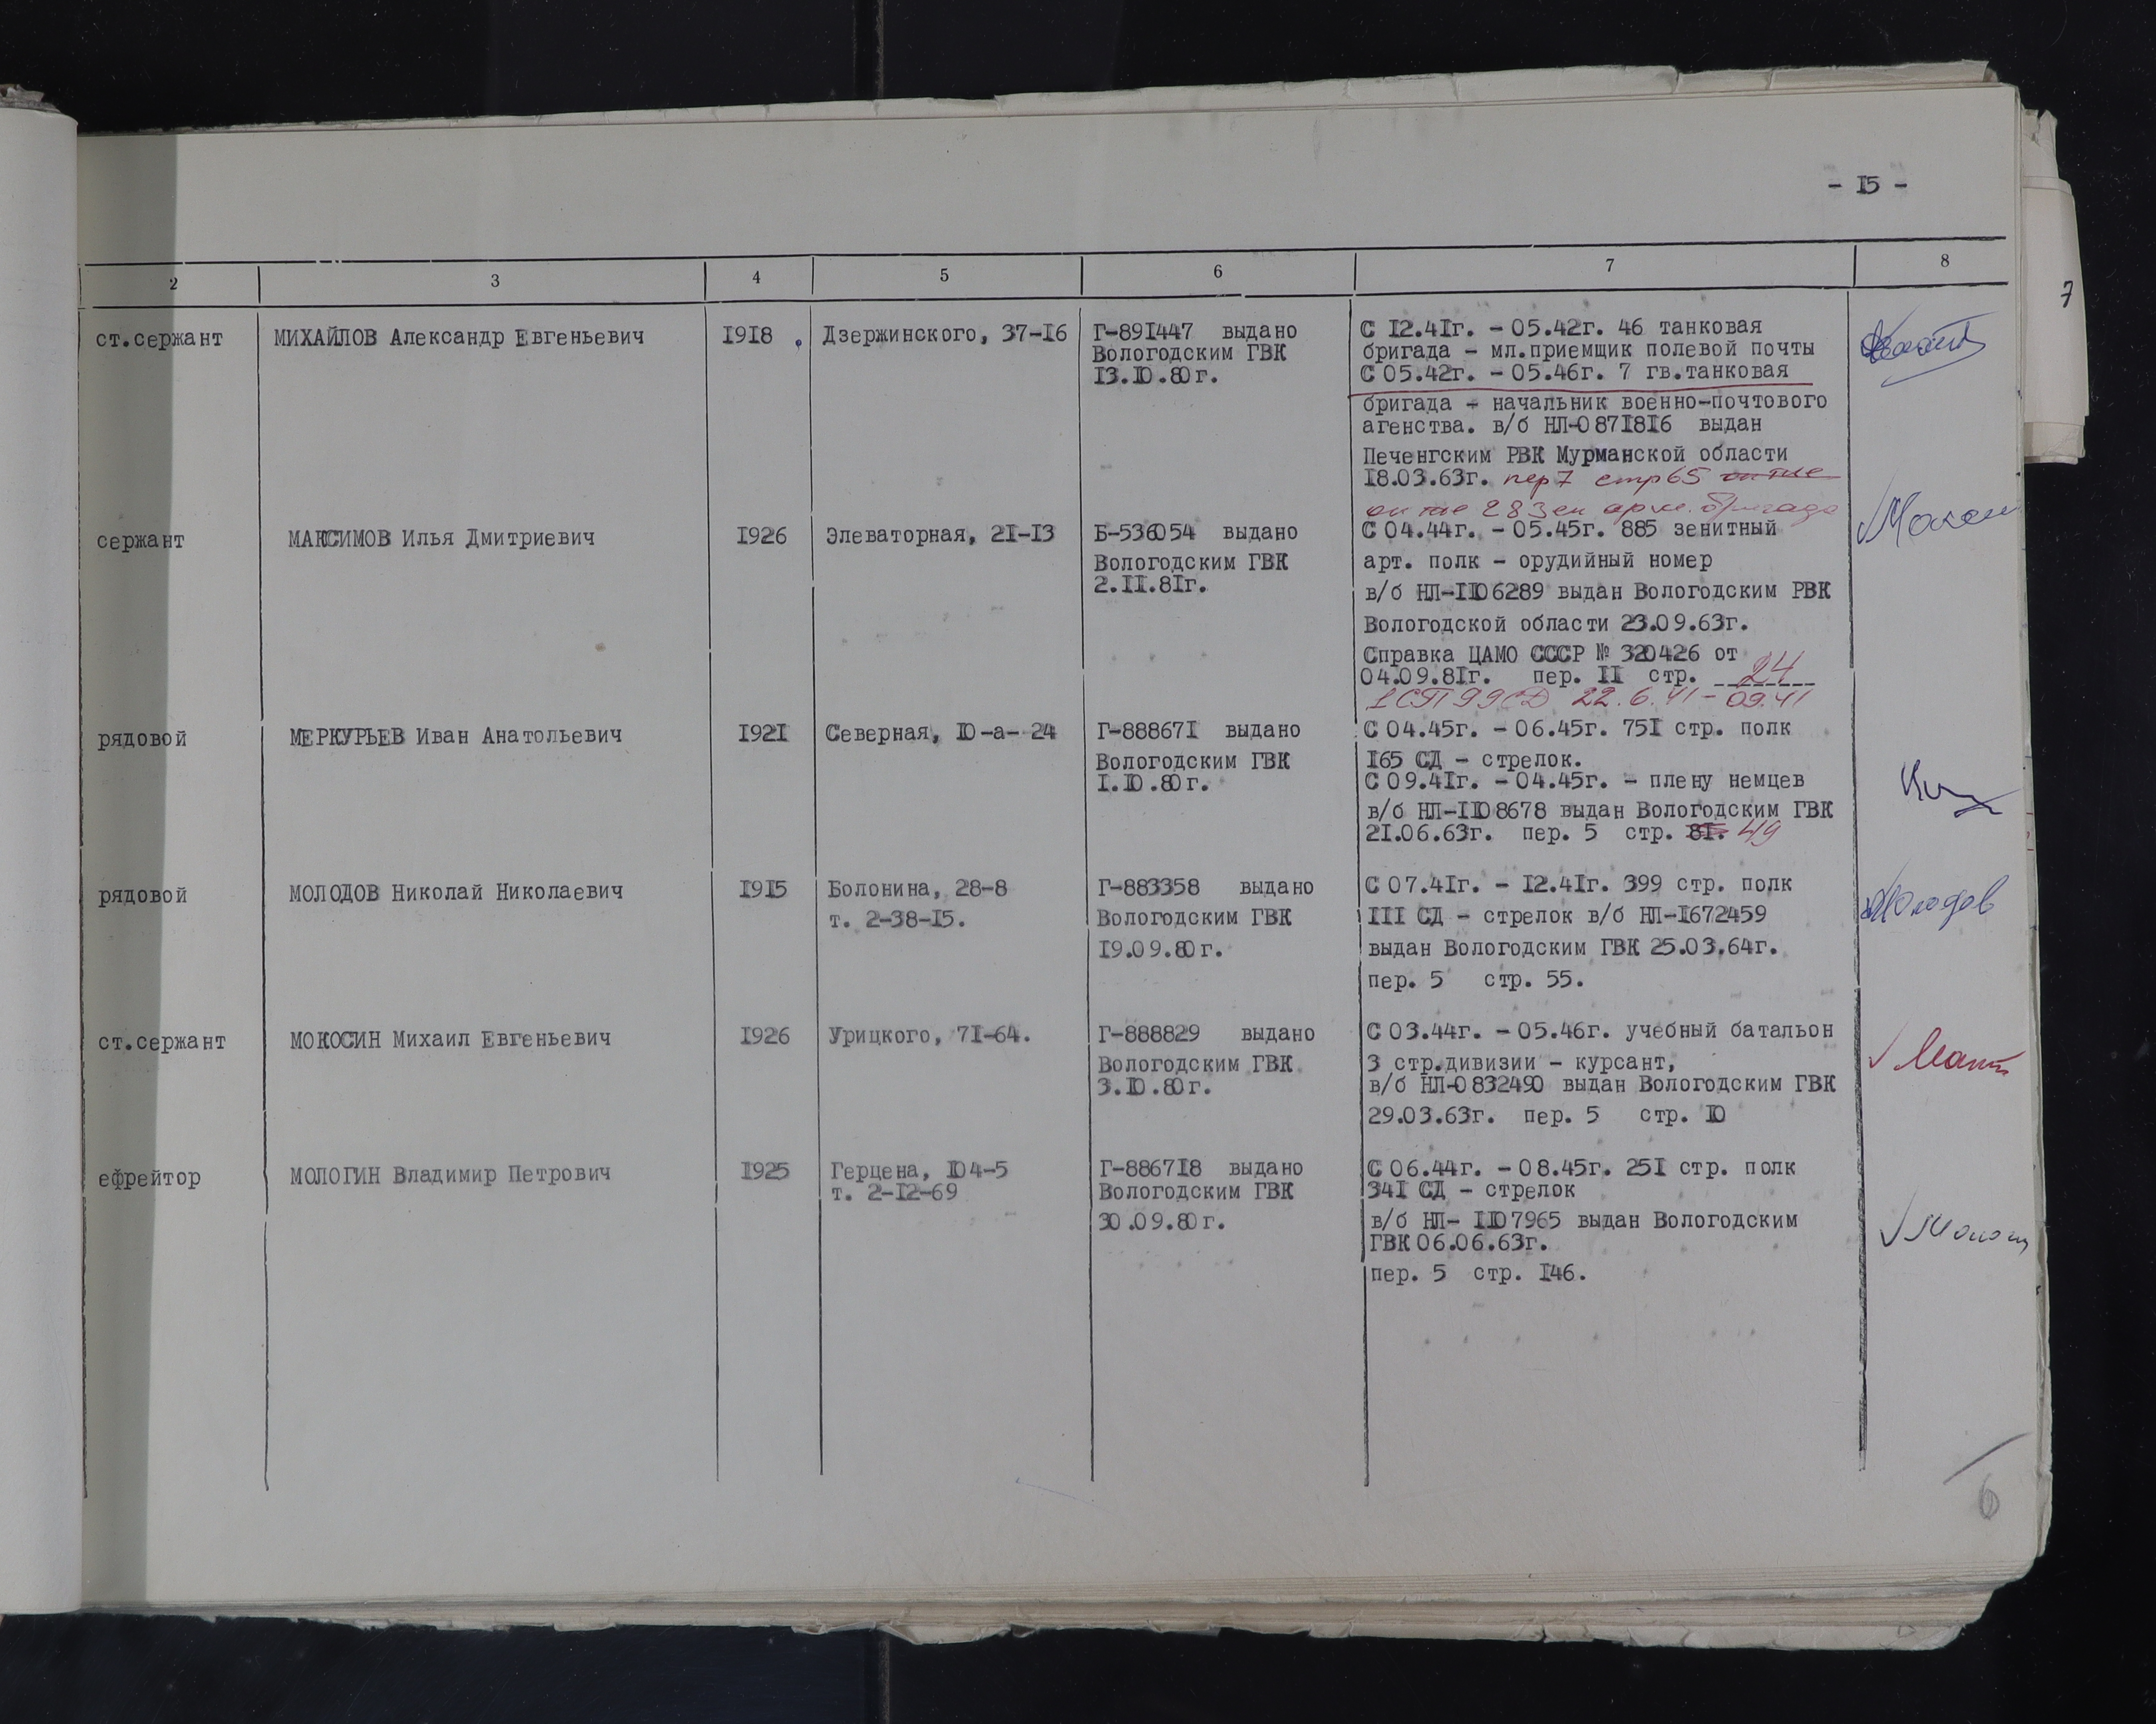 - I5 -
2 3 4 5 6 7 8
ст.сержант МИХАЙЛОВ Александр Евгеньевич I9I8 Дзержинского, 37-I6 Г-89I447 выдано
Вологодским ГВК
I3.I0.80г.
С I2.4Iг. - 05.42г. 46 танковая
бригада - мл.приемщик полевой почты
С 05.42г. - 05.46г. 7 гв.танковая
бригада - начальник военно-почтового
агенства. в/б НЛ-087I8I6 выдан
Печенгским РВК Мурманской области
I8.03.63г. пер 7 стр 65
283ен арт. бригада
сержант МАКСИМОВ Илья Дмитриевич I926 Элеваторная, 2I-I3 Б-536054 выдано
Вологодским ГВК
2.II.8Iг.
С 04.44г. - 05.45г. 885 зенитный
арт. полк - орудийный номер
в/б НЛ-II06289 выдан Вологодским РВК
Вологодской области 23.09.63г.
Справка ЦАМО СССР № 320426 от
04.09.8Iг. пер. II стр. 24
1 СП 99 СД 22.6.41 - 09.41
рядовой МЕРКУРЬЕВ Иван Анатольевич I92I Северная, I0-а- 24 Г-88867I выдано
Вологодским ГВК
I.I0.80г.
С 04.45г. - 06.45г. 75I стр. полк
I65 СД - стрелок.
С 09.4Iг. - 04.45г. - плену немцев
в/б НЛ-II08678 выдан Вологодским ГВК
2I.06.63г. пер. 5 стр. 8I. 49
рядовой МОЛОДОВ Николай Николаевич I9I5 Болонина, 28-8
т. 2-38-I5.
Г-883358 выдано
Вологодским ГВК
I9.09.80г.
С 07.4Iг. - I2.4Iг. 399 стр. полк
III СД - стрелок в/б НЛ-I672459
выдан Вологодским ГВК 25.03.64г.
пер. 5 стр. 55.
Молодов
ст.сержант МОКОСИН Михаил Евгеньевич I926 Урицкого, 7I-64. Г-888829 выдано
Вологодским ГВК
3.I0.80г.
С 03.44г. - 05.46г. учебный батальон
3 стр.дивизии - курсант,
в/б НЛ-0832490 выдан Вологодским ГВК
29.03.63г. пер. 5 стр. I0
ефрейтор МОЛОГИН Владимир Петрович I925 Герцена, I04-5
т. 2-I2-69
Г-8867I8 выдано
Вологодским ГВК
30.09.80г.
С 06.44г. - 08.45г. 25I стр. полк
34I СД - стрелок
в/б НЛ- II07965 выдан Вологодским
ГВК 06.06.63г.
пер. 5 стр. I46.
6
7